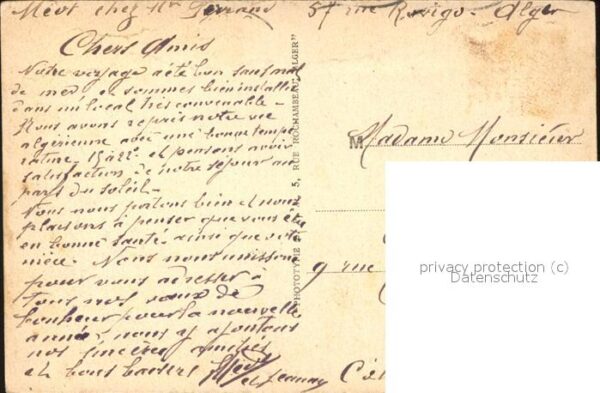 Méot chez Mr Ferrand 57 rue Rovigo - Alger
Chers Amis
Notre voyage a été bon sans mal
de mer et sommes bien installés
dans un local très convenable -
Nous avons repris notre vie
algérienne avec une bonne tempé
rature 15 à 22° et pensons avoir
satisfaction de notre séjour au
pays du soleil -
Nous nous portons bien et nous
plaisons à penser que vous êtes
en bonne santé ainsi que votre
mère. Nous nous unissons
pour vous adresser à
tous nos vœux de
bonheur pour la nouvelle
année, nous y ajoutons
nos sincères amitiés
et bons baisers
et Jeanne
PHOTOTYPE 5, RUE ROCHAMBEAU, ALGER"
M
Madame Monsieur
9 rue
privacy protection (c)
Datenschutz